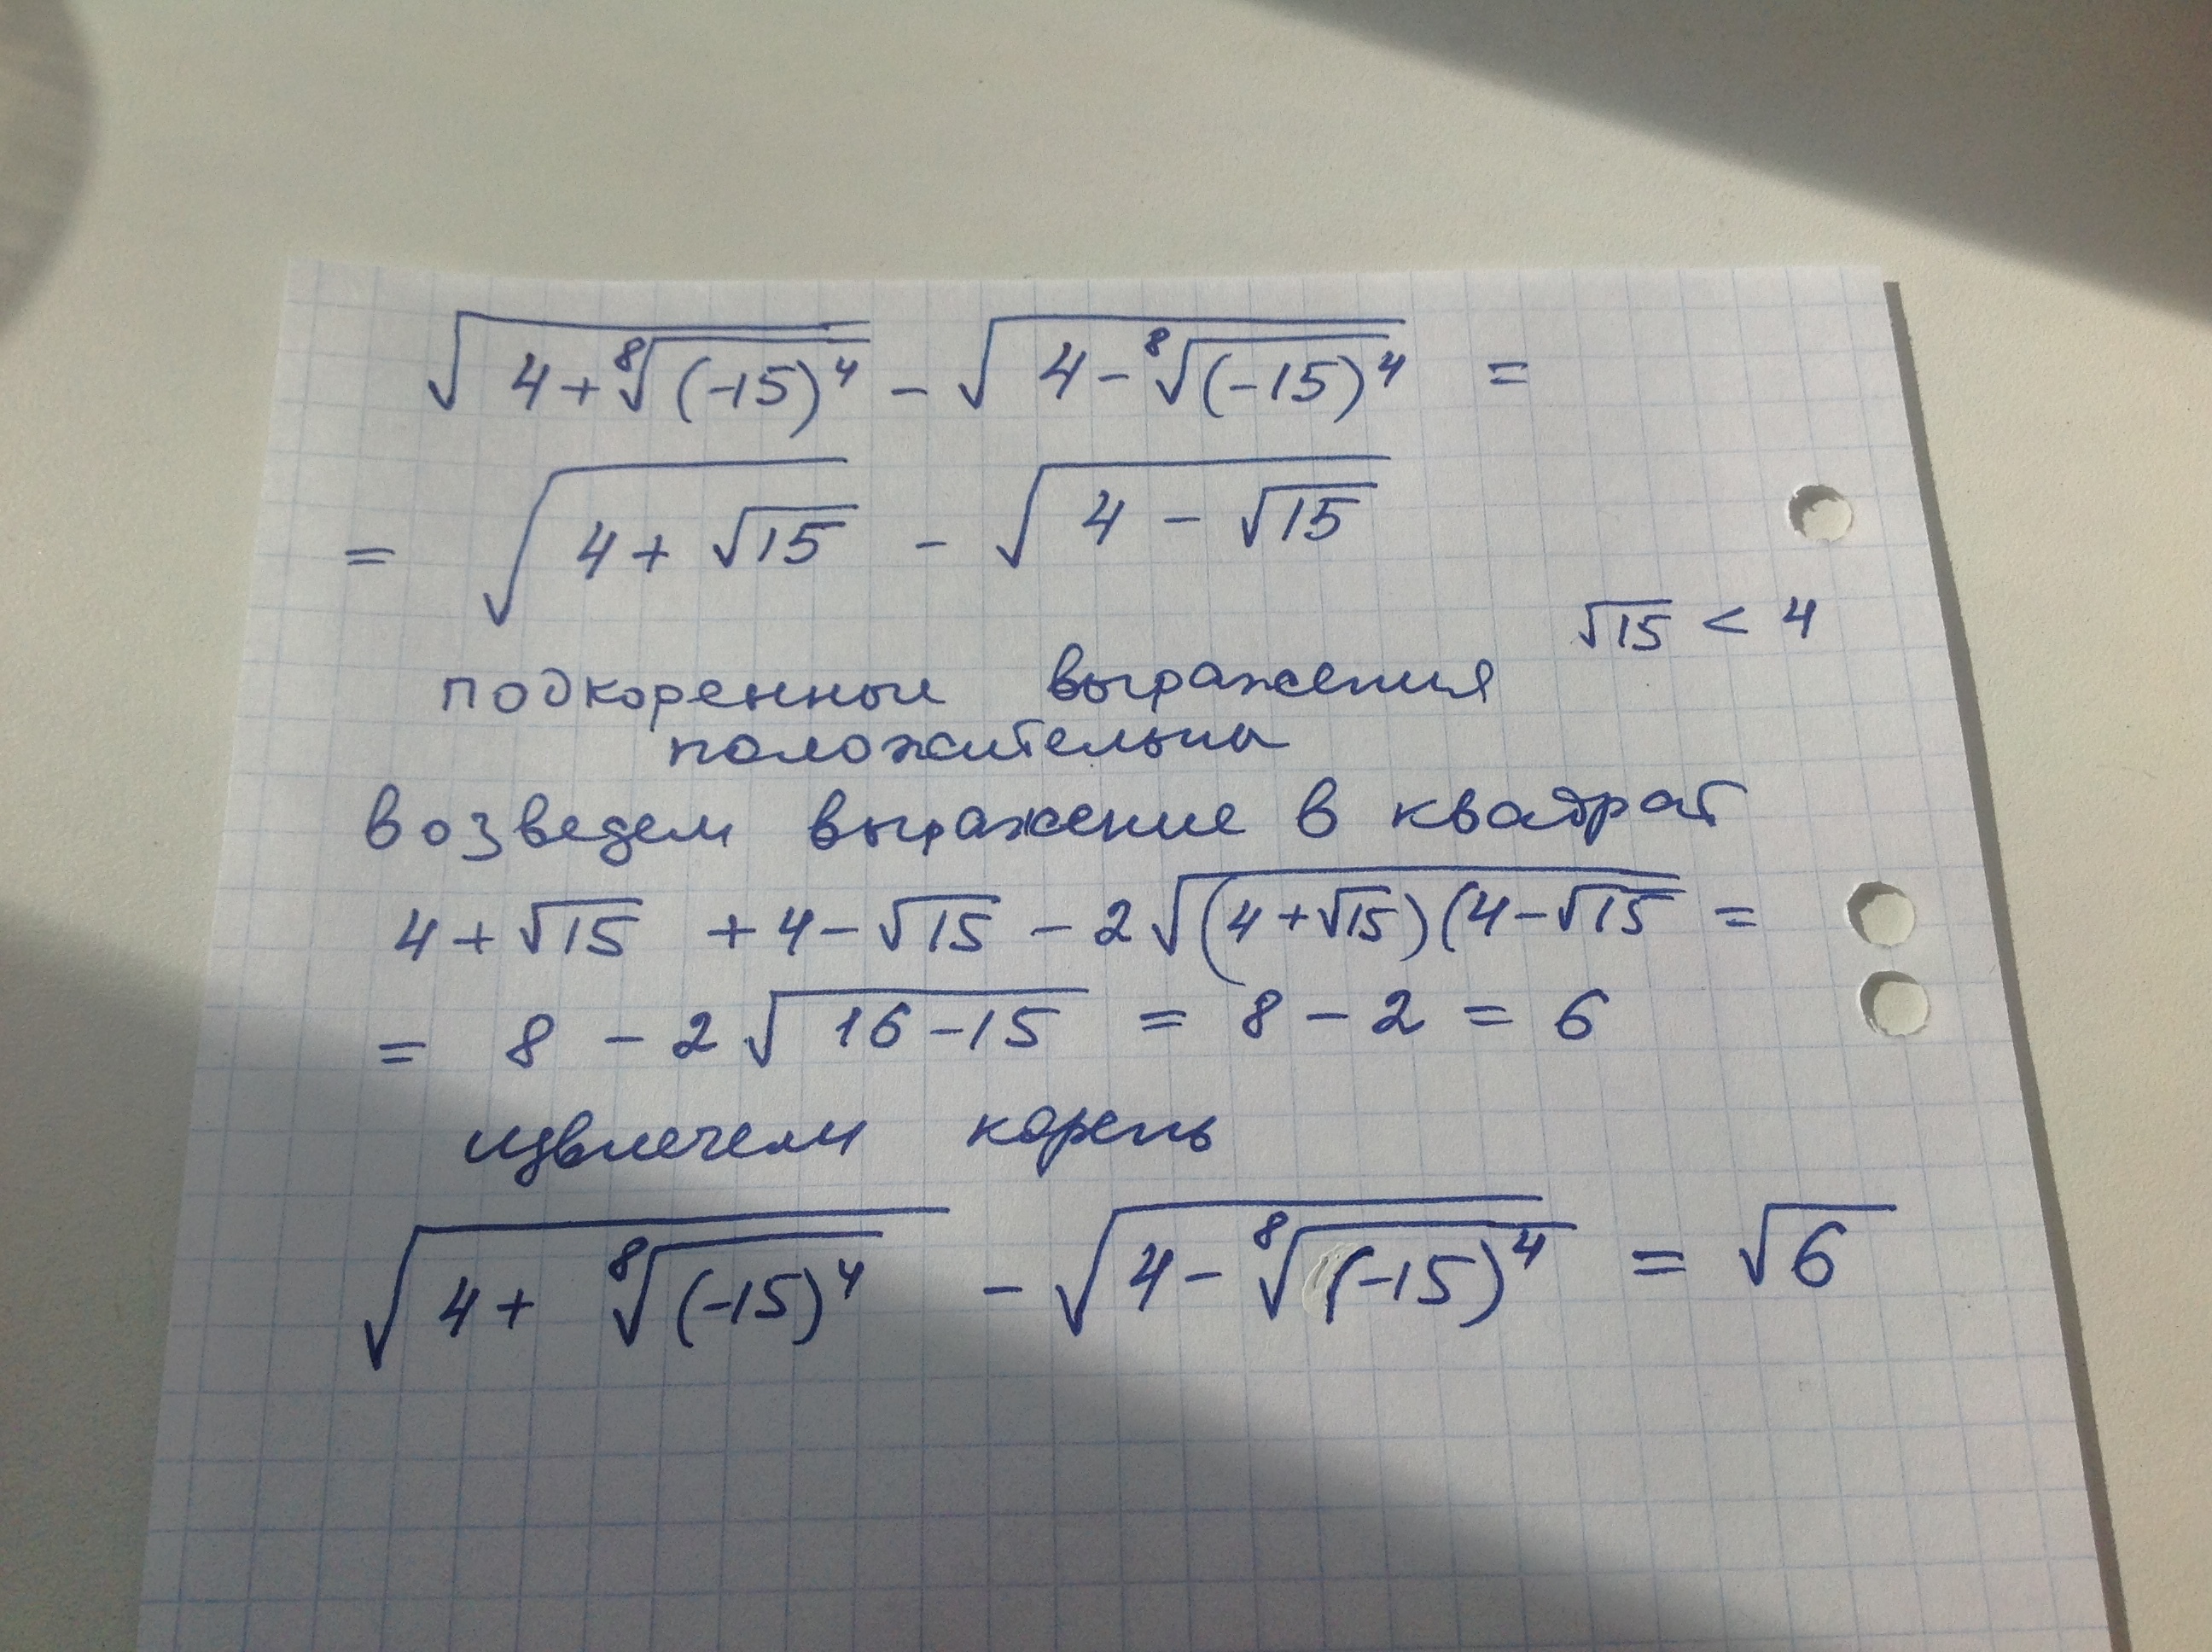 √(4+⁸√(-15)⁴) - √(4-⁸√(-15)⁴) =
= √(4+√15) - √(4-√15)
√15 < 4
подкоренные выражения
положительны
возведем выражение в квадрат
4+√15 +4-√15 - 2√((4+√15)(4-√15) =
= 8 - 2√(16-15) = 8 - 2 = 6
извлечем корень
√(4+⁸√(-15)⁴) - √(4-⁸√(-15)⁴) = √6